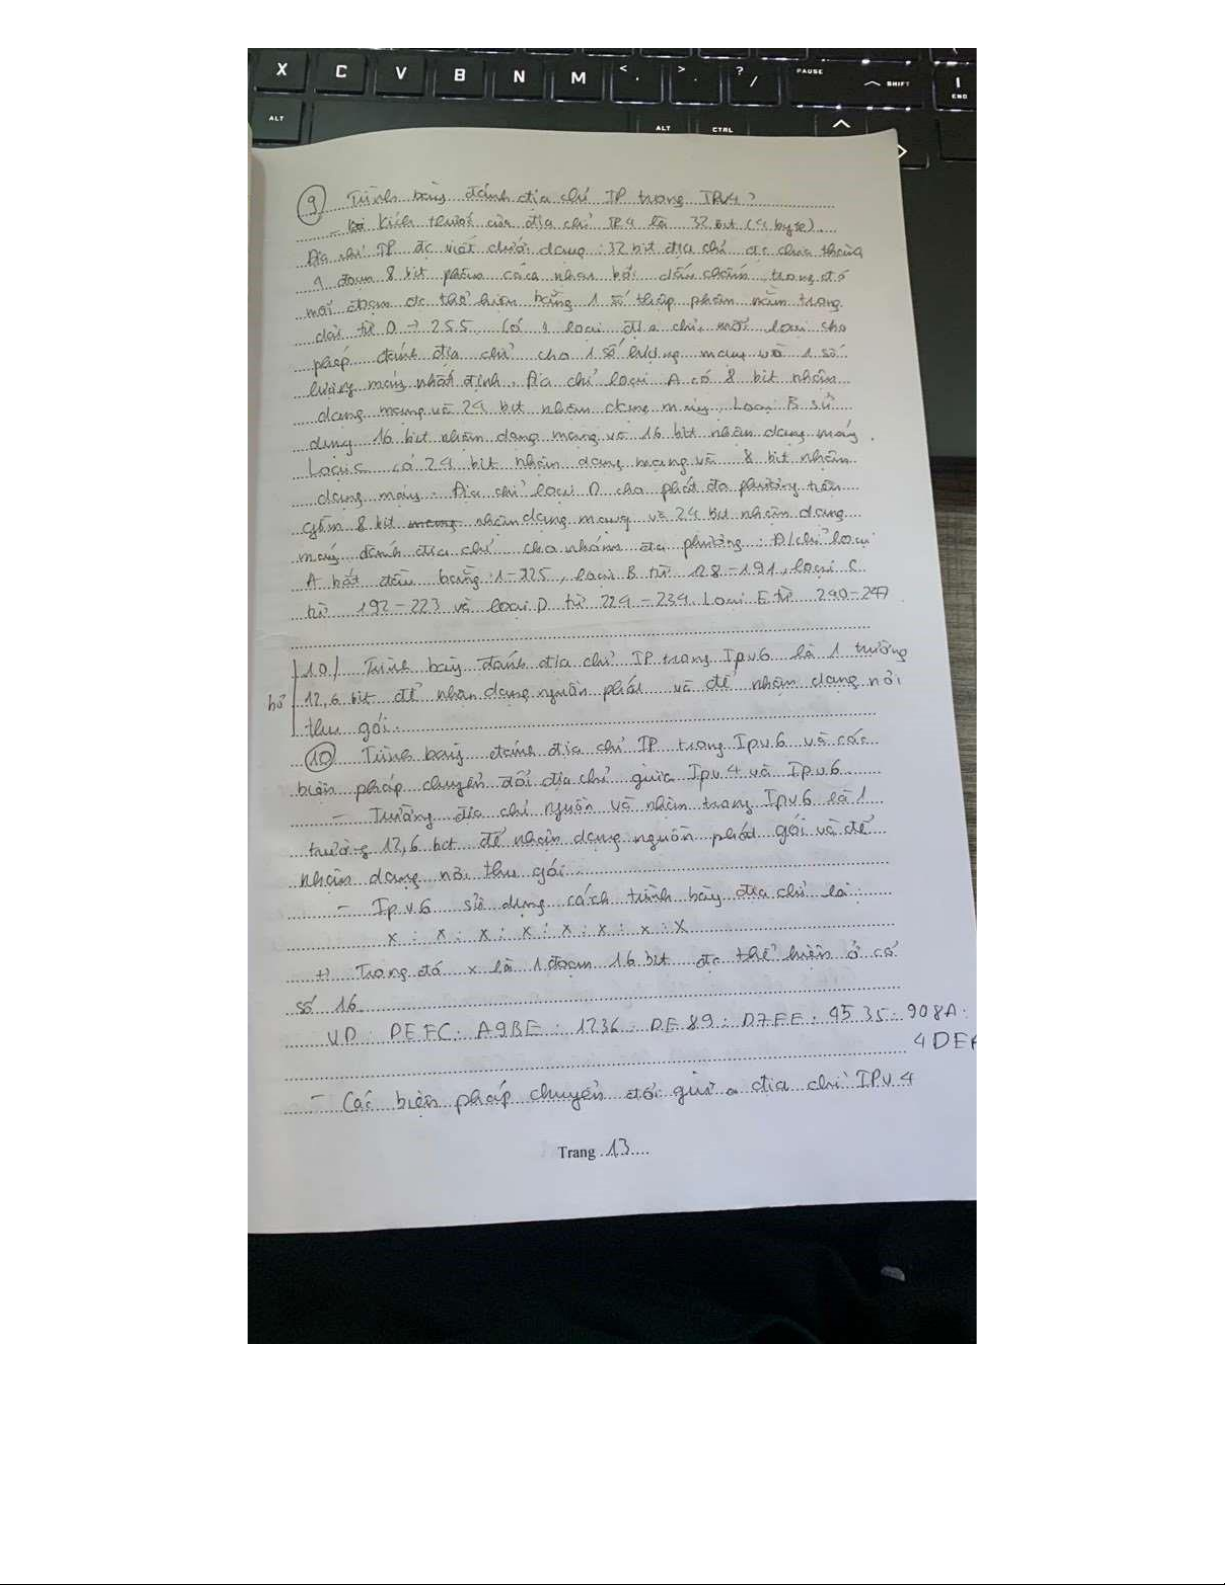 X C V B N M < , > . ? / PAUSE SHIFT END
ALT ALT CTRL
9 Trình bày đánh địa chỉ IP trong IPv4?
- Kích thước của địa chỉ IP4 là 32 bit (4 byte).
Địa chỉ IP đc viết dưới dạng: 32 bit địa chỉ đc chia thành
4 đoạn 8 bit phân cách nhau bởi dấu chấm, trong đó
mỗi đoạn đc thể hiện bằng 1 số thập phân nằm trong
dải từ 0 → 255. Có 4 loại địa chỉ, mỗi loại cho
phép đánh địa chỉ cho 1 số lượng mạng và 1 số
lượng máy nhất định. Địa chỉ loại A có 8 bit nhận
dạng mạng và 24 bit nhận dạng máy. Loại B sử
dụng 16 bit nhận dạng mạng và 16 bit nhận dạng máy.
Loại C có 24 bit nhận dạng mạng và 8 bit nhận
dạng máy. Địa chỉ loại D cho phát đa phương tiện
gồm 8 bit nhận dạng mạng và 24 bit nhận dạng
máy đánh địa chỉ cho nhóm đa phương. Đ/chỉ loại
A bắt đầu bằng: 1-225, loại B từ 128-191, loại C
từ 192-223 và loại D từ 224-239. Loại E từ 240-247
10/ Trình bày đánh địa chỉ IP trong Ipv6 là 1 trường
bỏ 12,6 bit để nhận dạng nguồn phát và để nhận dạng nơi
thu gói.
10 Trình bày đánh địa chỉ IP trong Ipv6 và các
biện pháp chuyển đổi địa chỉ giữa Ipv4 và Ipv6.
- Trường địa chỉ nguồn và nhận trong Ipv6 là 1
trường 12,6 bit để nhận dạng nguồn phát gói và để
nhận dạng nơi thu gói.
- Ipv6 sử dụng cách trình bày địa chỉ là:
x : x : x : x : x : x : x : x
+) Trong đó x là 1 đoạn 16 bit đc thể hiện ở cơ
số 16
VD: DEFC: A9BE: 1236: DE89: D7FE: 4535: 908A:
4DEF
- Các biện pháp chuyển đổi giữa địa chỉ IPv4
Trang 13